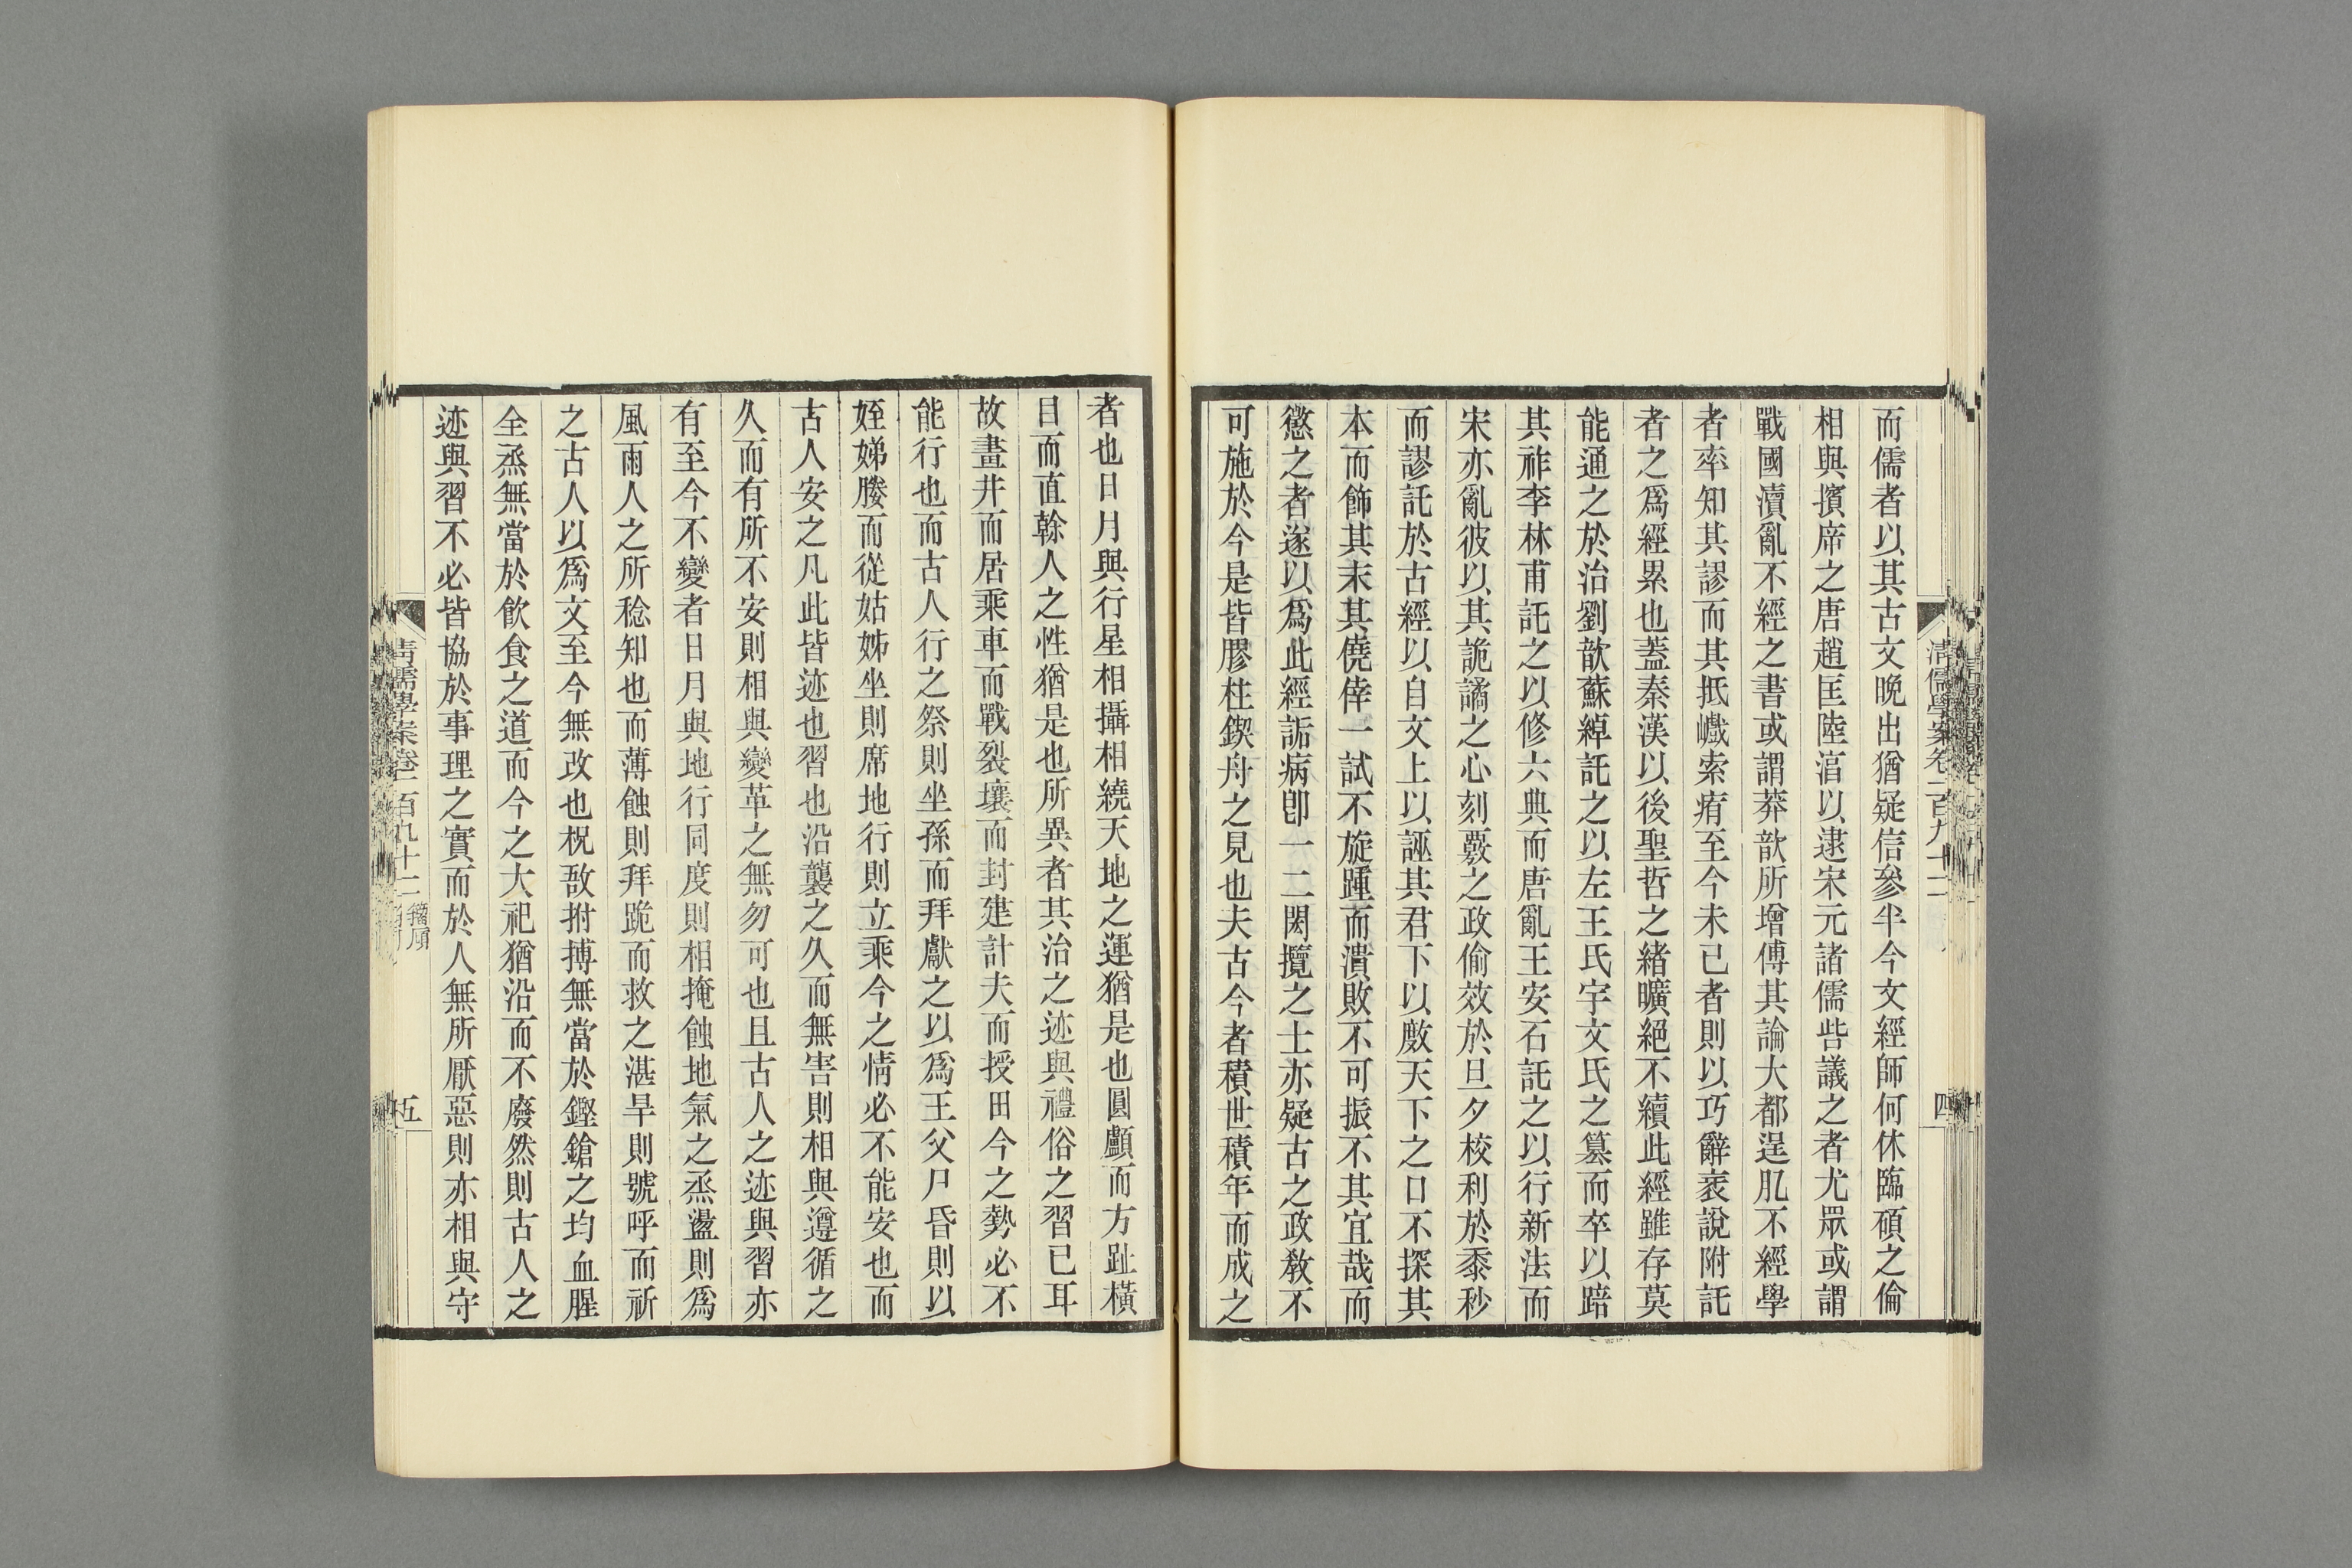 而儒者以其古文晚出猶疑信參半今文經師何休臨碩之倫
相與擯席之唐趙匡陸淳以逮宋元諸儒呰議之者尤眾或謂
戰國瀆亂不經之書或謂莽歆所增傅其論大都逞肊不經學
者率知其謬而其抵巇索痏至今未已者則以巧辭衺說附託
者之爲經累也蓋秦漢以後聖哲之緒曠絕不續此經雖存莫
能通之於治劉歆蘇綽託之以左王氏宇文氏之篡而卒以踣
其祚李林甫託之以修六典而唐亂王安石託之以行新法而
宋亦亂彼以其詭譎之心刻覈之政偷效於旦夕校利於黍秒
而謬託於古經以自文上以誣其君下以敼天下之口不探其
本而飾其末其僥倖一試不旋踵而潰敗不可振不其宜哉而
懲之者遂以爲此經詬病卽一二閎攬之士亦疑古之政敎不
可施於今是皆膠柱鍥舟之見也夫古今者積世積年而成之
清儒學案卷二百九十二
四
者也日月與行星相攝相繞天地之運猶是也圓顱而方趾橫
目而直榦人之性猶是也所異者其治之迹與禮俗之習已耳
故畫井而居乘車而戰裂壤而封建計夫而授田今之勢必不
能行也而古人行之祭則坐孫而拜獻之以爲王父尸昏則以
姪娣媵而從姑姊坐則席地行則立乘今之情必不能安也而
古人安之凡此皆迹也習也沿襲之久而無害則相與遵循之
久而有所不安則相與變革之無勿可也且古人之迹與習亦
有至今不變者日月與地行同度則相掩蝕地氣之烝盪則爲
風雨人之所稔知也而薄蝕則拜跪而救之湛旱則號呼而祈
之古人以爲文至今無改也柷敔拊搏無當於鏗鎗之均血腥
全烝無當於飮食之道而今之大祀猶沿而不廢然則古人之
迹與習不必皆協於事理之實而於人無所厭惡則亦相與守
清儒學案卷二百九十二 籀廎
五